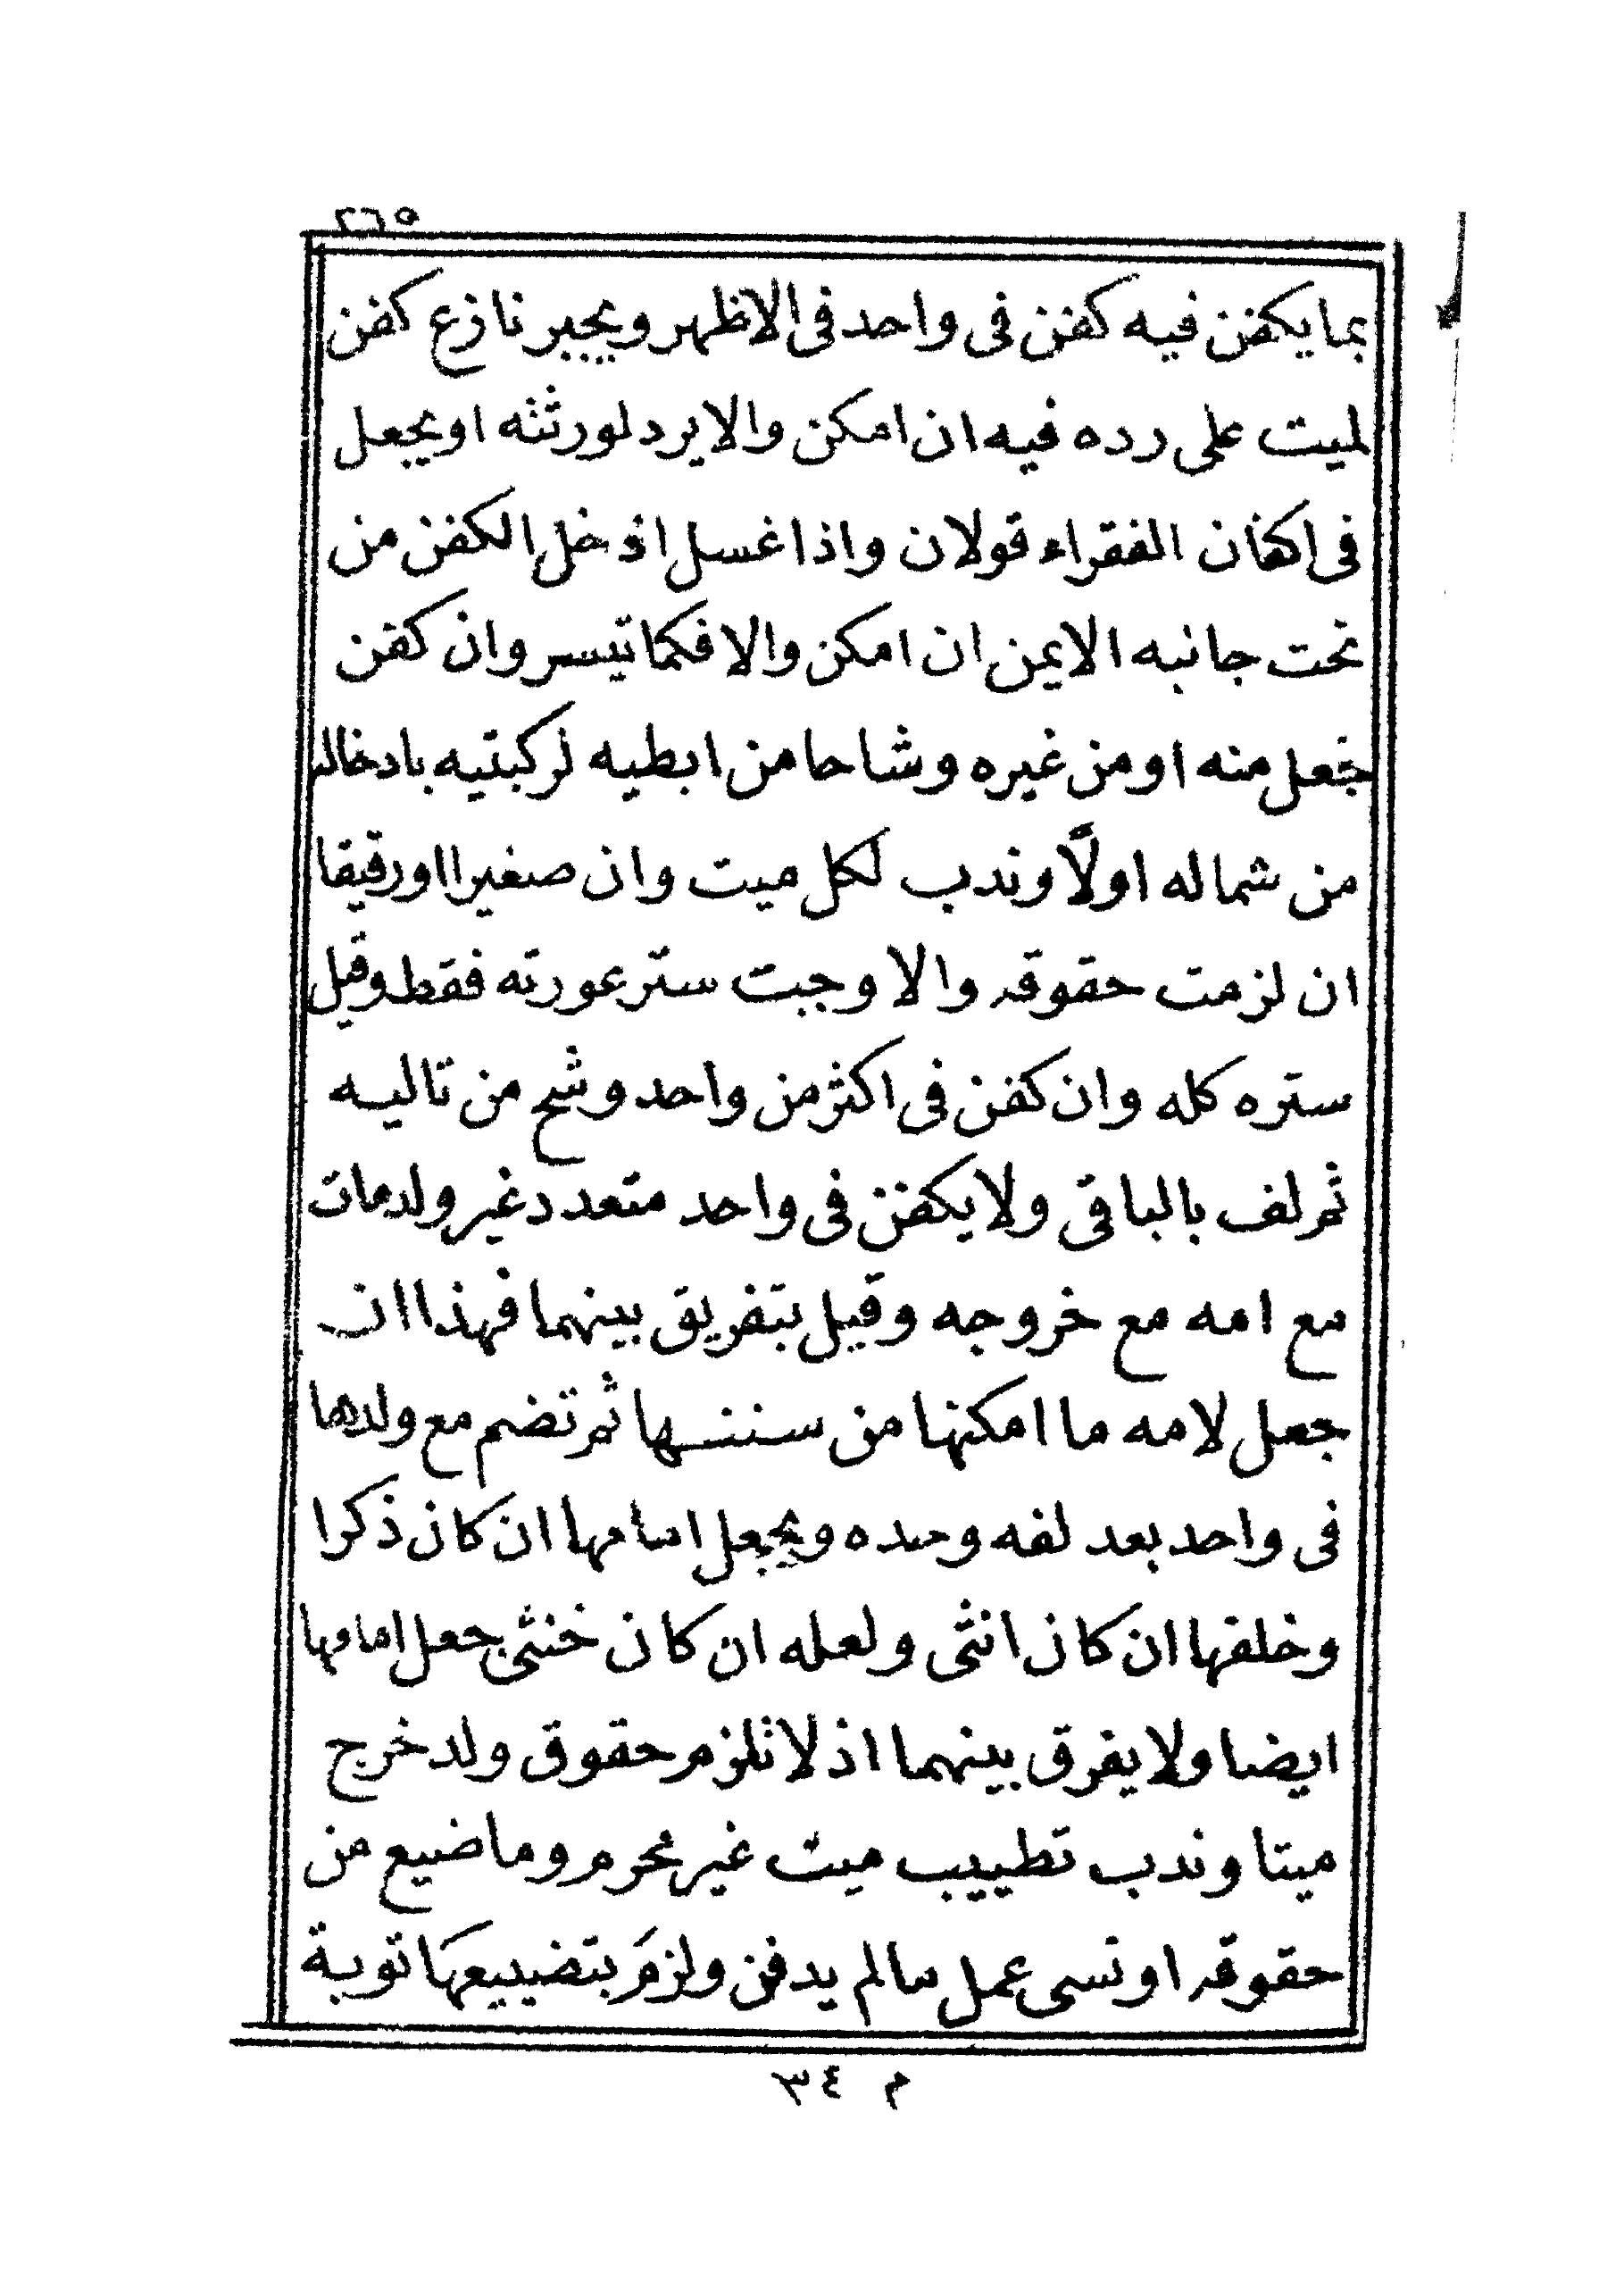 ٢٦٥
بما يكفن فيه كفن فى واحد فى الاظهر ويجبر نازع كفن
لميت على رده فيه ان امكن والا يرد لورثته او يجعل
فى اكفان الفقراء قولان واذا غسل ادخل الكفن من
تحت جانبه الايمن ان امكن والا فكما تيسر وان كفن
جعل منه او من غيره وشاحا من ابطيه لركبتيه بادخاله
من شماله اولًا وندب لكل ميت وان صغيرا او رقيقا
ان لزمت حقوقه والا وجبت ستر عورته فقط وقيل
ستره كله وان كفن فى اكثر من واحد وشح من تاليه
ثم لف بالباقى ولا يكفن فى واحد متعدد غير ولد مات
مع امه مع خروجه وقيل بتفريق بينهما فهذا ان
جعل لامه ما امكنها من سننها ثم تضم مع ولدها
فى واحد بعد لفه وحده ويجعل امامها ان كان ذكرا
وخلفها ان كان انثى ولعله ان كان خنثى جعل امامها
ايضا ولا يفرق بينهما اذ لا تلزم حقوق ولد خرج
ميتا وندب تطييب ميت غير محرم وما ضيع من
حقوقه او نسى عمل مالم يدفن ولزم بتضييعها توبة
م ٣٤